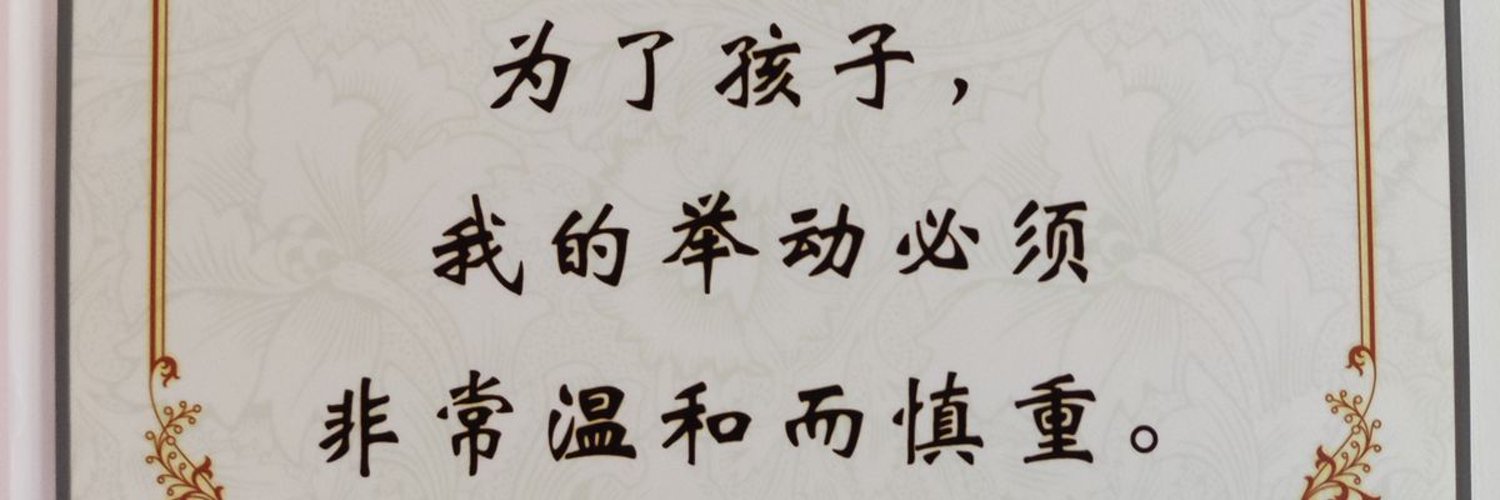 为了孩子，
我的举动必须
非常温和而慎重。